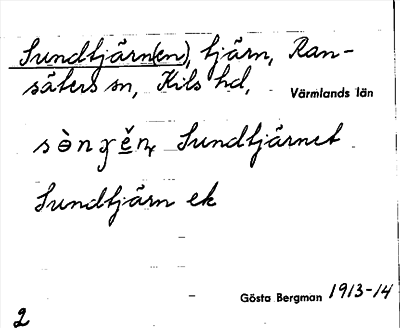 Sundtjärn(en), tjärn, Ran-
säters sn, Kils hd,
Värmlands län
Sundtjärnet
Sundtjärn ek
Gösta Bergman 1913-14
2